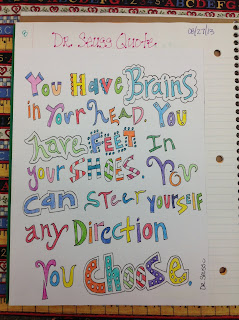 08/27/13
Dr. Seuss Quote
You Have Brains
in Your Head. You
have FEET In
your SHOES. You
can Steer yourself
any Direction
You Choose.
DR. SEUSS